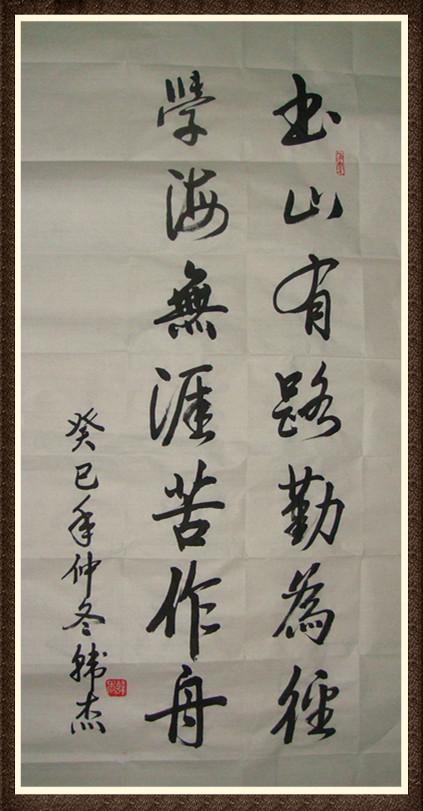 书山有路勤為徑
學海無涯苦作舟
癸巳年仲冬韩杰